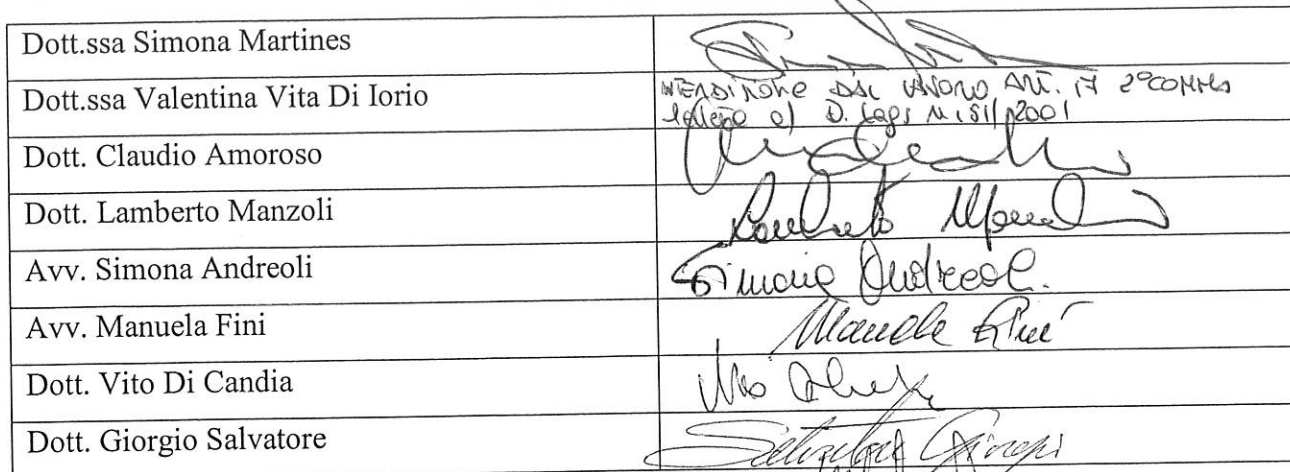 Dott.ssa Simona Martines
Dott.ssa Valentina Vita Di Iorio
ART. 17 2° COMMA
D. Lgs 151/2001
Dott. Claudio Amoroso
Dott. Lamberto Manzoli
Lamberto Manzoli
Avv. Simona Andreoli
Simona Andreoli
Avv. Manuela Fini
Manuela Fini
Dott. Vito Di Candia
Dott. Giorgio Salvatore
Salvatore Giorgio